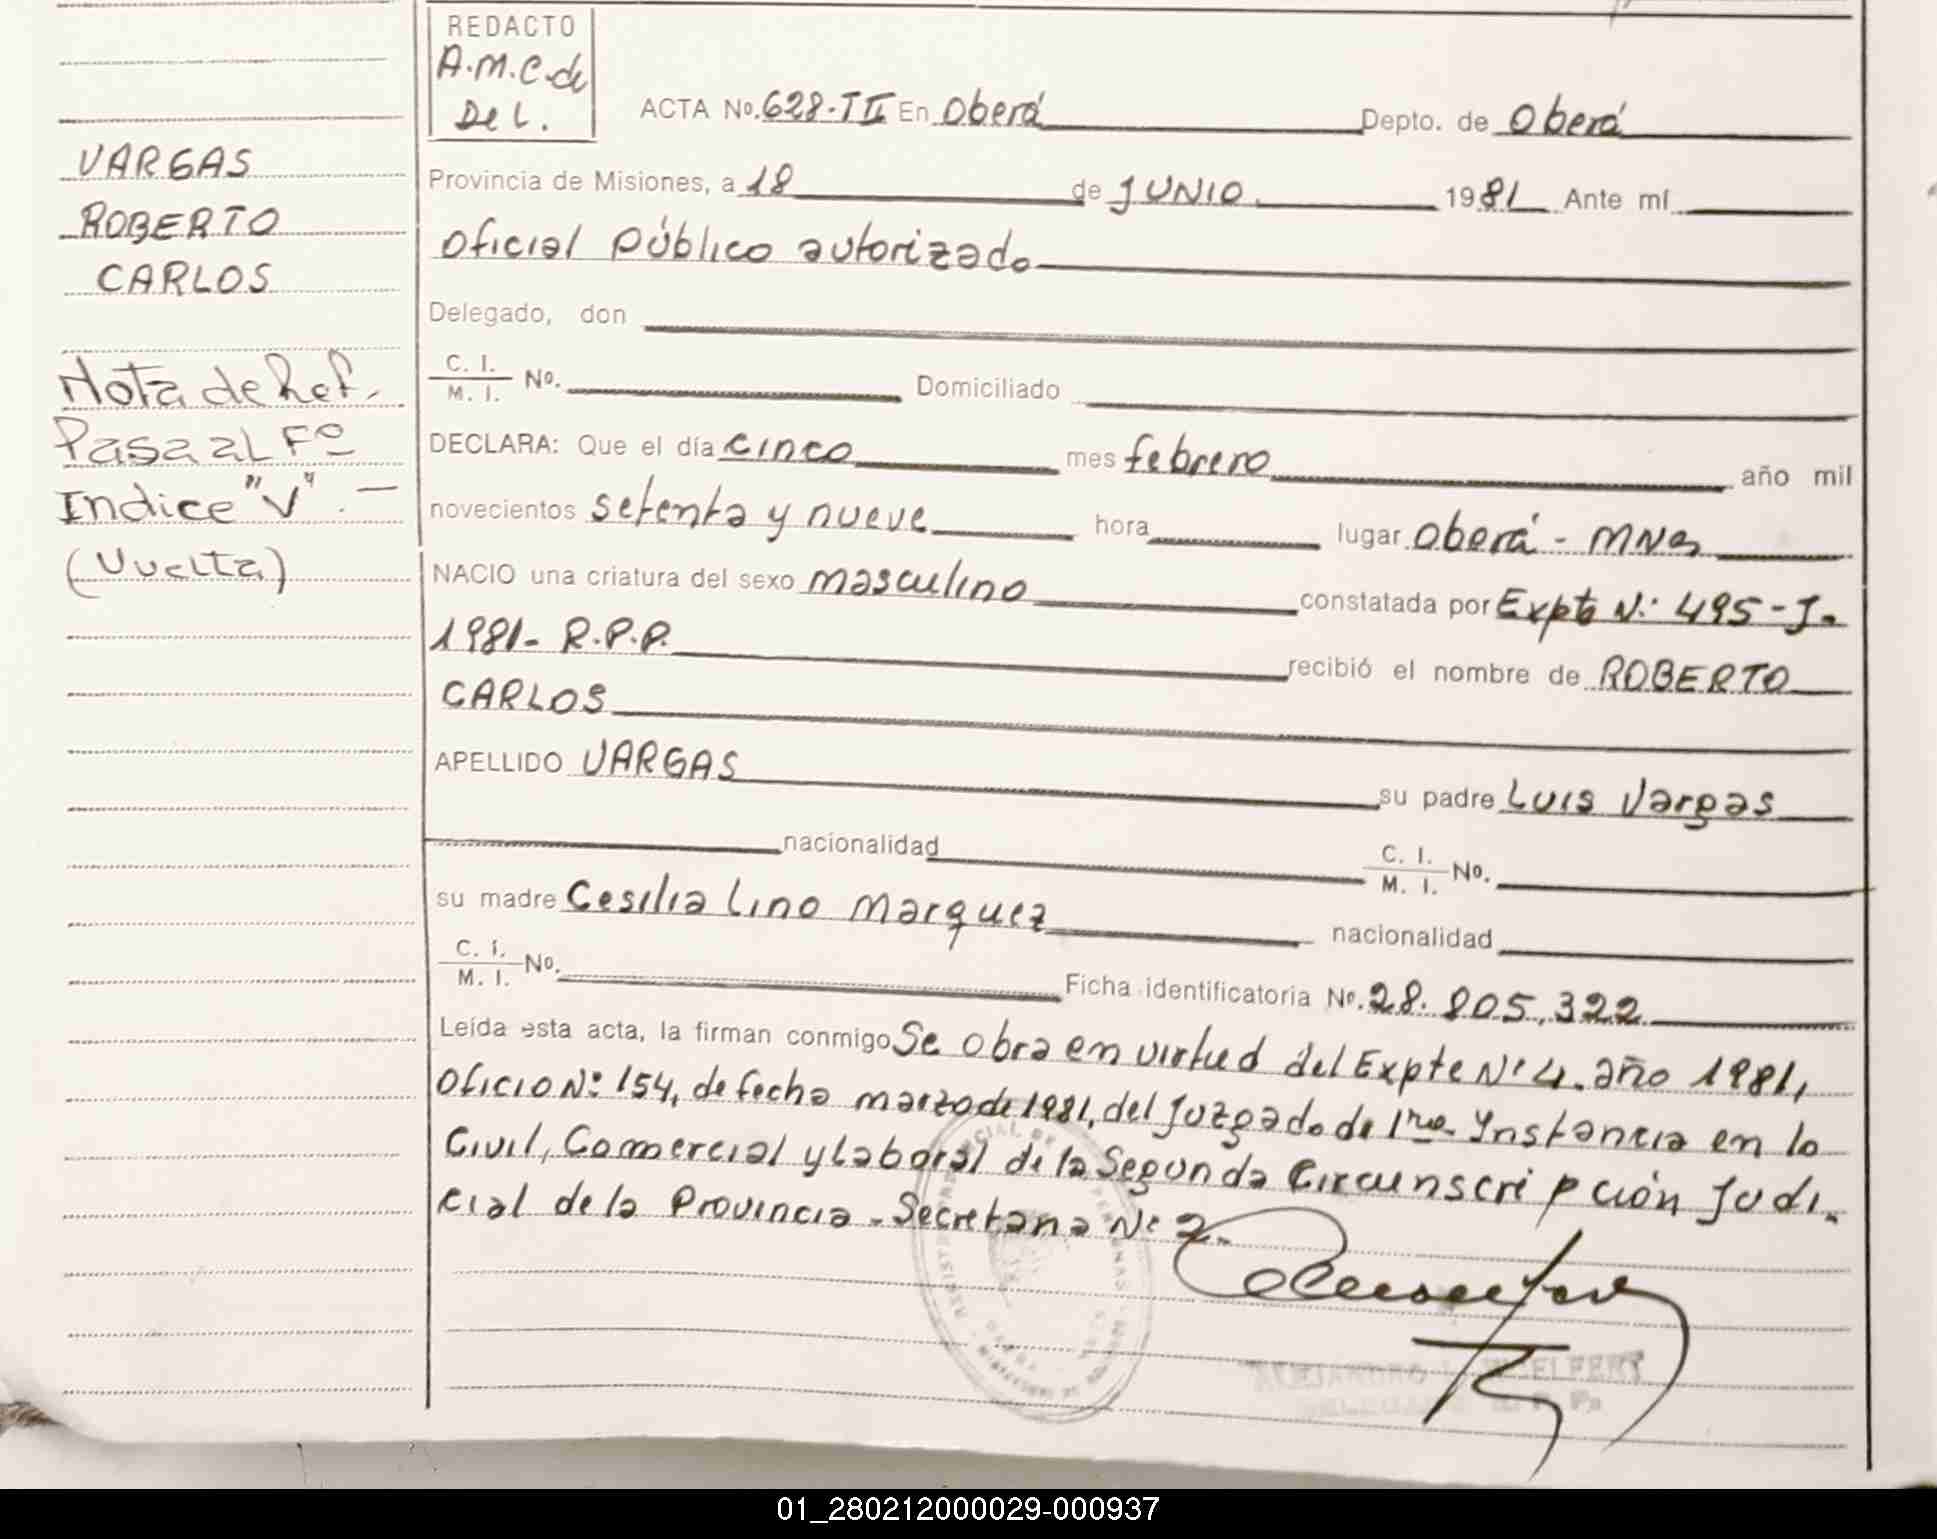 REDACTO
A.M.C. de
Del.
ACTA No. 628-TII En Oberá Depto. de Oberá
VARGAS
ROBERTO
CARLOS
Provincia de Misiones, a 18 de JUNIO 1981 Ante mí
oficial público autorizado
Delegado, don
C. I.
M. I. No. Domiciliado
Nota de Ref.
Pasa al Fo
Indice "V". —
(Vuelta)
DECLARA: Que el día cinco mes febrero año mil
novecientos setenta y nueve hora lugar Oberá - MNes
NACIO una criatura del sexo masculino constatada por Expte N: 495-J-
1981- R.P.P. recibió el nombre de ROBERTO
CARLOS
APELLIDO VARGAS su padre Luis Vargas
nacionalidad C. I.
M. I. No.
su madre Cesilia Lino Marquez nacionalidad
C. I.
M. I. No. Ficha identificatoria No. 28.805.322
Leída esta acta, la firman conmigo Se obra en virtud del Expte No 4. año 1981,
Oficio No: 154, de fecha marzo de 1981, del Juzgado de 1ra. Instancia en lo
Civil, Comercial y Laboral de la Segunda Circunscripción Judi-
cial de la Provincia - Secretaria No 2.
ALEJANDRO
01_280212000029-000937